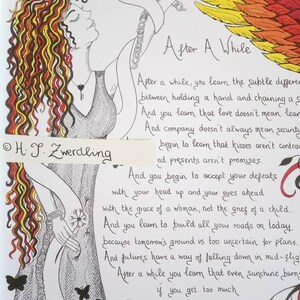 After A While
After a while, you learn the subtle differen
between holding a hand and chaining a s
And you learn that love doesn't mean lean
And company doesn't always mean securi
© H. J. Zwerdling
begin to learn that kisses aren't contrac
nd presents aren't promises.
And you begin to accept your defeats
with your head up and your eyes ahead
with the grace of a woman, not the grief of a child.
And you learn to build all your roads on today
because tomorrow's ground is too uncertain for plans.
And futures have a way of falling down in mid-flig
After a while you learn that even sunshine burns
if you get too much.